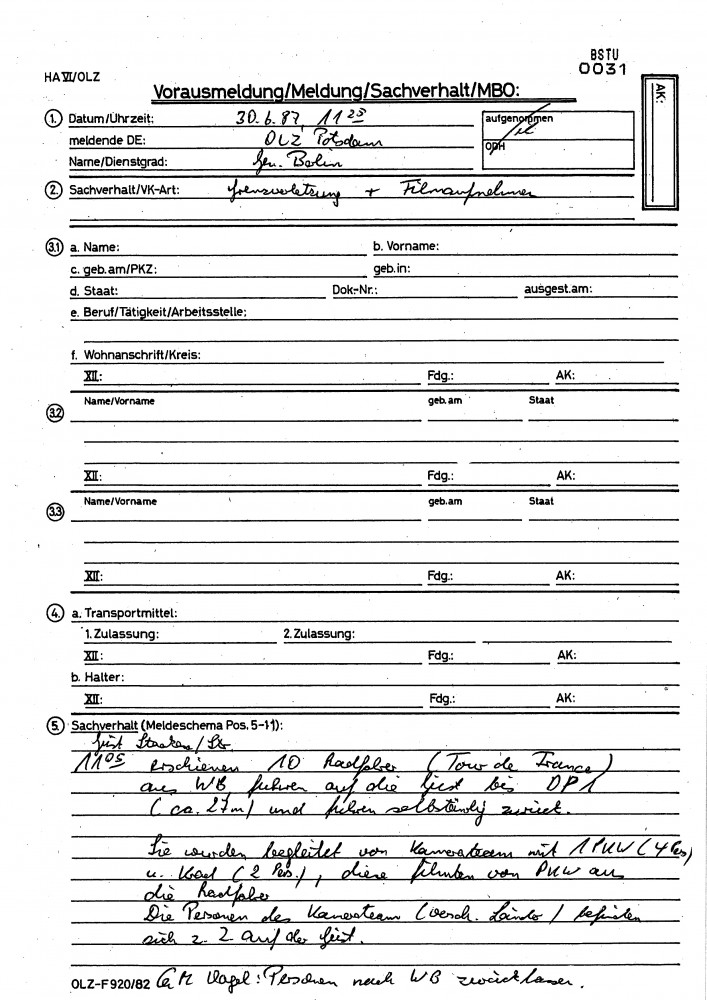 BSTU
0031
HA VI/OLZ
Vorausmeldung/Meldung/Sachverhalt/MBO:
AK:
1. Datum/Uhrzeit: 30.6.87, 11 25
aufgenommen
meldende DE: OLZ Potsdam
ODH
Name/Dienstgrad: Gen. Berlin
2. Sachverhalt/VK-Art: Grenzverletzung + Filmaufnehmer
3.1 a. Name: b. Vorname:
c. geb.am/PKZ: geb.in:
d. Staat: Dok-Nr.: ausgest.am:
e. Beruf/Tätigkeit/Arbeitsstelle:
f. Wohnanschrift/Kreis:
XII: Fdg.: AK:
3.2 Name/Vorname geb.am Staat
XII: Fdg.: AK:
3.3 Name/Vorname geb.am Staat
XII: Fdg.: AK:
4. a. Transportmittel:
1. Zulassung: 2. Zulassung:
XII: Fdg.: AK:
b. Halter:
XII: Fdg.: AK:
5. Sachverhalt (Meldeschema Pos. 5-11):
Güst Staaken/Str
11 05 erschienen 10 Radfahrer (Tour de France)
aus WB, fuhren auf die Güst bis DP1
(ca. 27m) und fuhren selbständig zurück.
Sie wurden begleitet von Kamerateam mit 1 PKW (4 Pers)
u. Krad (2 Pers.), diese filmten vom PKW aus
die Radfahrer
Die Personen des Kamerateam (versch. Länder) befinden
sich z. Z. auf der Güst.
OLZ-F920/82 Vogel: Personen nach WB zurücklassen.